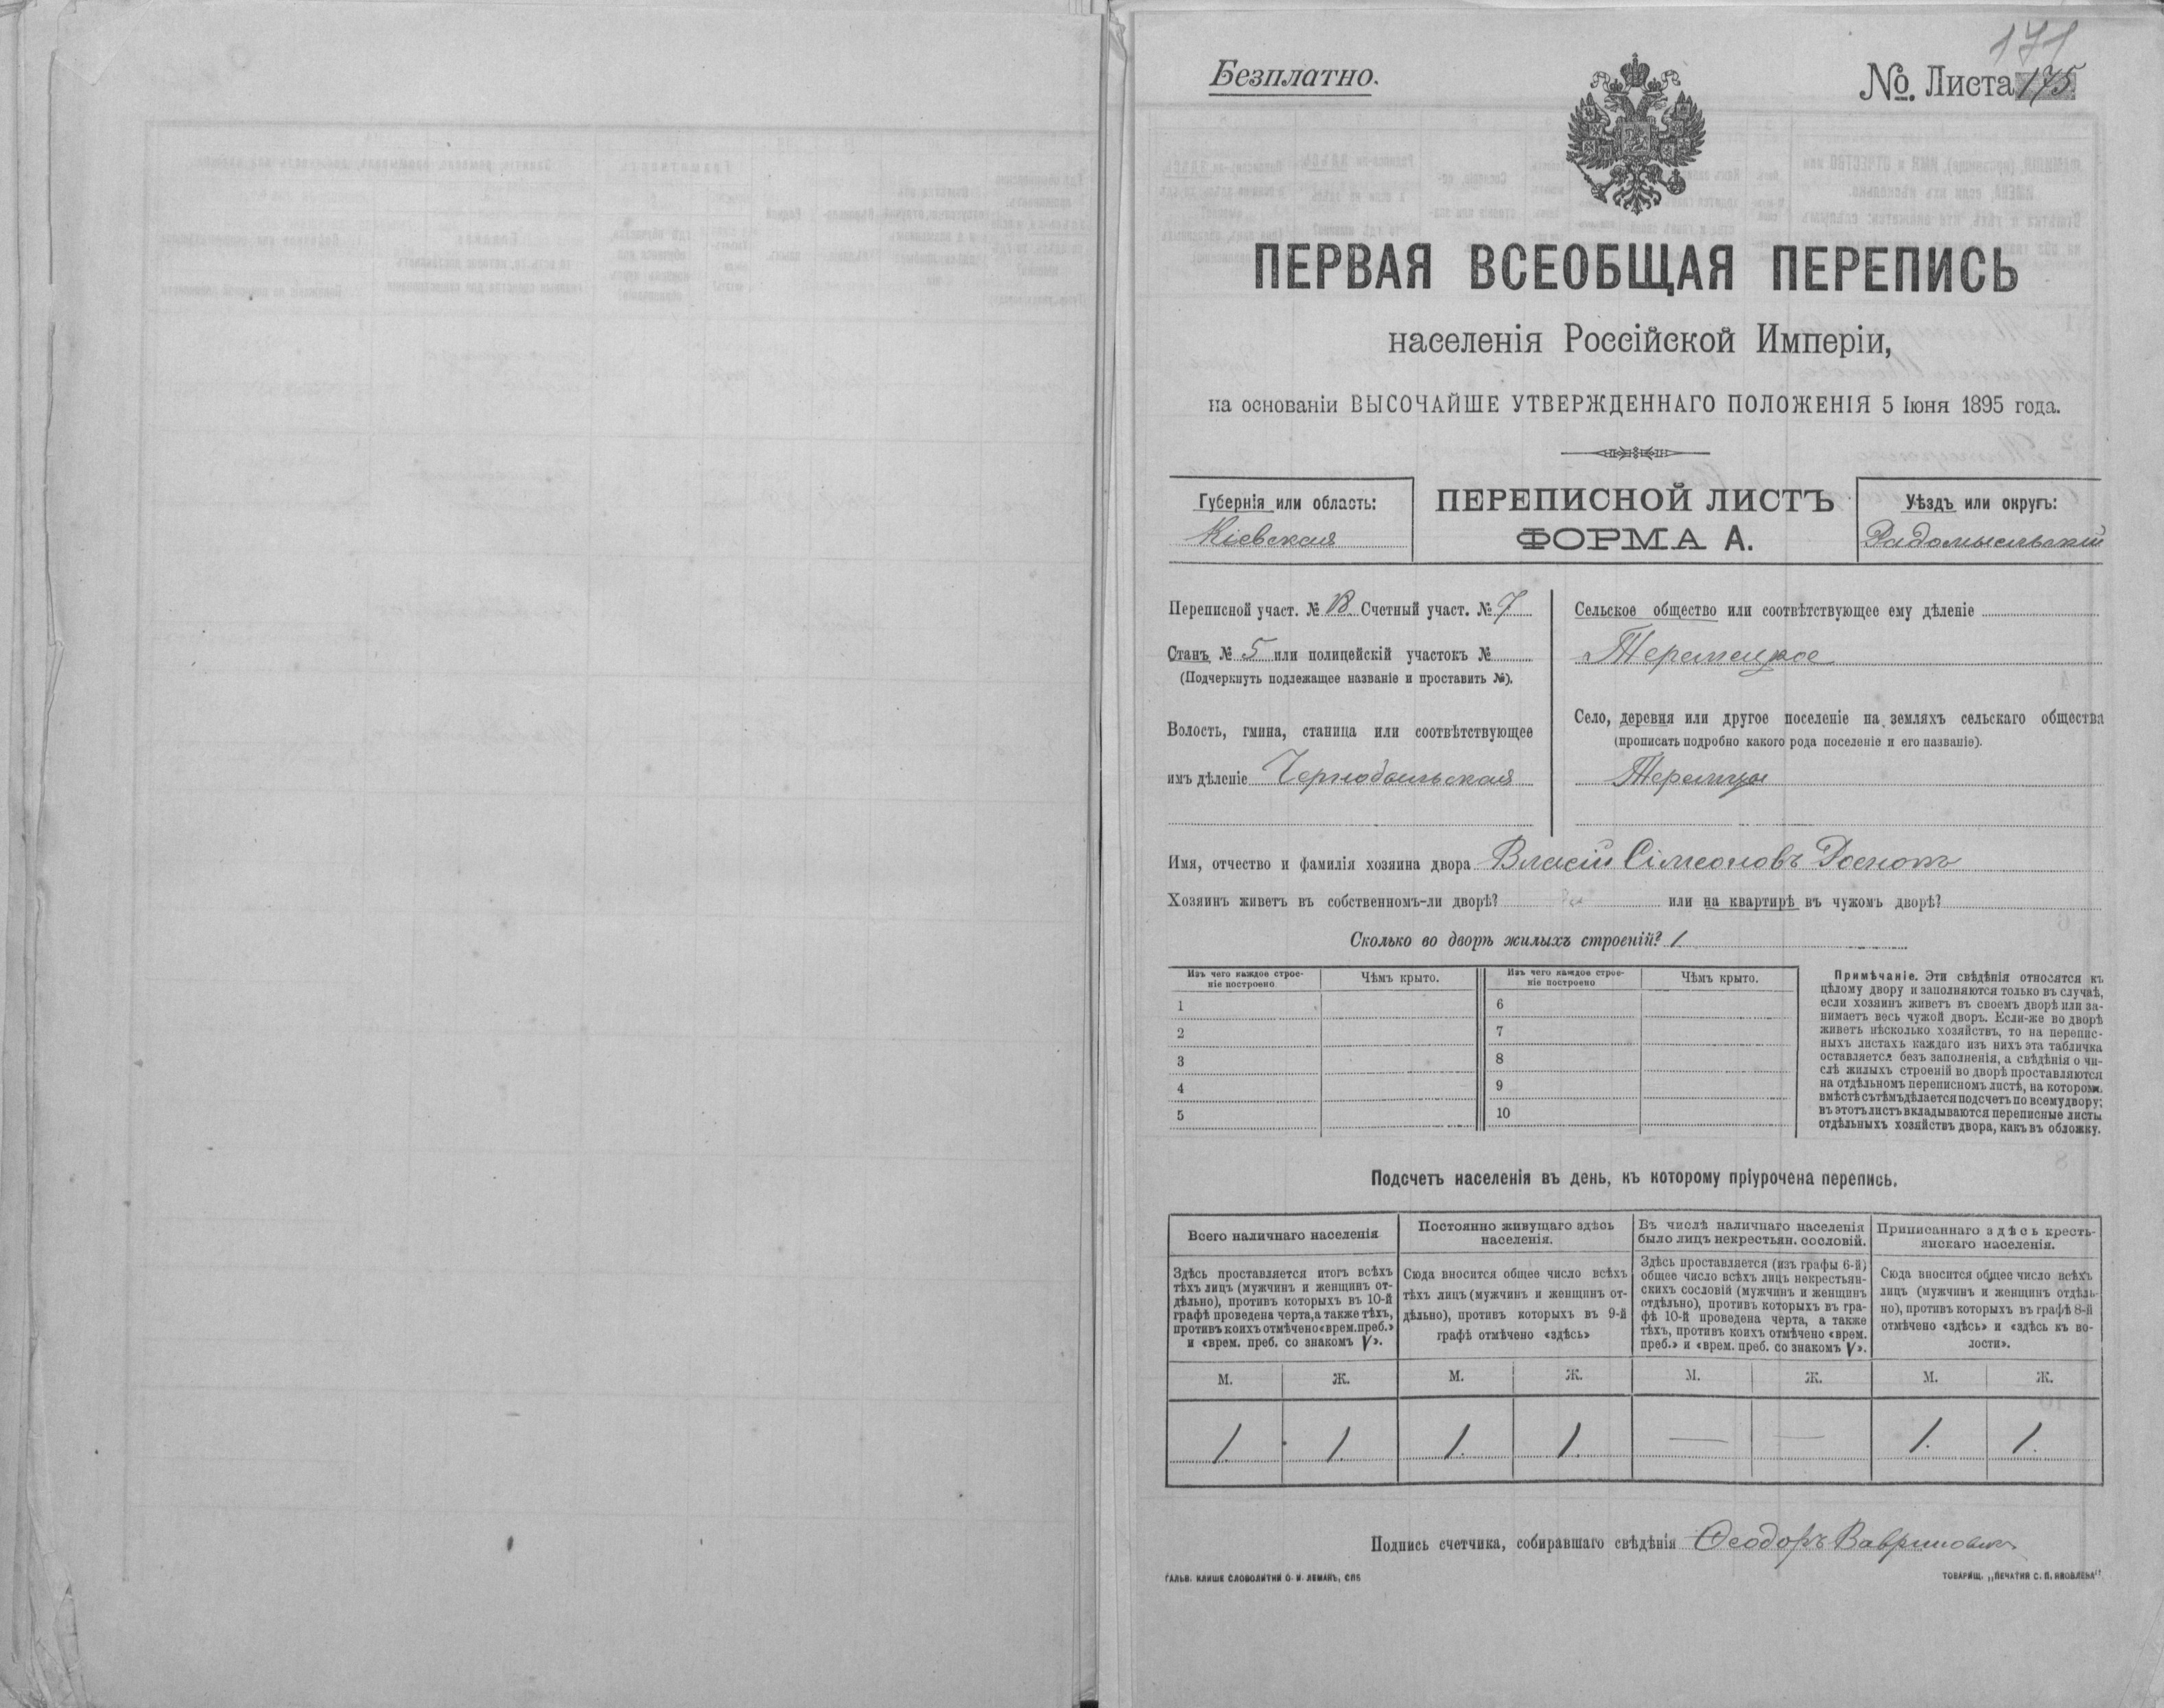 171
Безплатно.
№. Листа 175
ПЕРВАЯ ВСЕОБЩАЯ ПЕРЕПИСЬ
населенія Россійской Имперіи,
на основаніи ВЫСОЧАЙШЕ УТВЕРЖДЕННАГО ПОЛОЖЕНІЯ 5 Іюня 1895 года.
Губернія или область:
Кіевская
ПЕРЕПИСНОЙ ЛИСТЪ
ФОРМА А.
Уѣздъ или округъ:
Радомысльскій
Переписной участ. № Счетный участ. № 7
Станъ № 5 или полицейскій участокъ №
(Подчеркнуть подлежащее названіе и проставить №).
Волость, гмина, станица или соотвѣтствующее
имъ дѣленіе Чернобыльская
Сельское общество или соотвѣтствующее ему дѣленіе
Теремецкое
Село, деревня или другое поселеніе на земляхъ сельскаго общества
(прописать подробно какого рода поселеніе и его названіе).
Теремцы
Имя, отчество и фамилія хозяина двора Власій Сімеоновъ
Хозяинъ живетъ въ собственномъ-ли дворѣ? или на квартирѣ въ чужомъ дворѣ?
Сколько во дворѣ жилыхъ строеній? 1
Изъ чего каждое строе-
ніе построено
Чѣмъ крыто.
Изъ чего каждое строе-
ніе построено
Чѣмъ крыто.
1 6
2 7
3 8
4 9
5 10
Примѣчаніе. Эти свѣдѣнія относятся къ
цѣлому двору и заполняются только въ случаѣ,
если хозяинъ живетъ въ своемъ дворѣ или за-
нимаетъ весь чужой дворъ. Если-же во дворѣ
живетъ нѣсколько хозяйствъ, то на перепис-
ныхъ листахъ каждаго изъ нихъ эта табличка
оставляется безъ заполненія, а свѣдѣнія о чи-
слѣ жилыхъ строеній во дворѣ проставляются
на отдѣльномъ переписномъ листѣ, на которомъ
вмѣстѣ съ тѣмъ дѣлается подсчетъ по всему двору;
въ этотъ листъ вкладываются переписные листы
отдѣльныхъ хозяйствъ двора, какъ въ обложку.
Подсчетъ населенія въ день, къ которому пріурочена перепись.
Всего наличнаго населенія
Здѣсь проставляется итогъ всѣхъ
тѣхъ лицъ (мужчинъ и женщинъ от-
дѣльно), противъ которыхъ въ 10-й
графѣ проведена черта, а также тѣхъ,
противъ коихъ отмѣчено «врем. преб.»
и «врем. преб. со знакомъ V».
Постоянно живущаго здѣсь
населенія.
Сюда вносится общее число всѣхъ
тѣхъ лицъ (мужчинъ и женщинъ от-
дѣльно), противъ которыхъ въ 9-й
графѣ отмѣчено «здѣсь»
Въ числѣ наличнаго населенія
было лицъ некрестьян. сословій.
Здѣсь проставляется (изъ графы 6-й)
общее число всѣхъ лицъ некрестьян-
скихъ сословій (мужчинъ и женщинъ
отдѣльно), противъ которыхъ въ гра-
фѣ 10-й проведена черта, а также
тѣхъ, противъ коихъ отмѣчено «врем.
преб.» и «врем. преб. со знакомъ V».
Приписаннаго здѣсь кресть-
янскаго населенія.
Сюда вносится общее число всѣхъ
лицъ (мужчинъ и женщинъ отдѣль-
но), противъ которыхъ въ графѣ 8-й
отмѣчено «здѣсь» и «здѣсь къ во-
лости».
М. Ж. М. Ж. М. Ж. М. Ж.
1 1. 1. 1. — — 1. 1.
Подпись счетчика, собиравшаго свѣдѣнія Ѳеодоръ
ГАЛЬВ. КЛИШЕ СЛОВОЛИТНИ О. И. ЛЕМАНЪ, СПБ
ТОВАРИЩ. „ПЕЧАТНЯ С. П. ЯКОВЛЕВА"